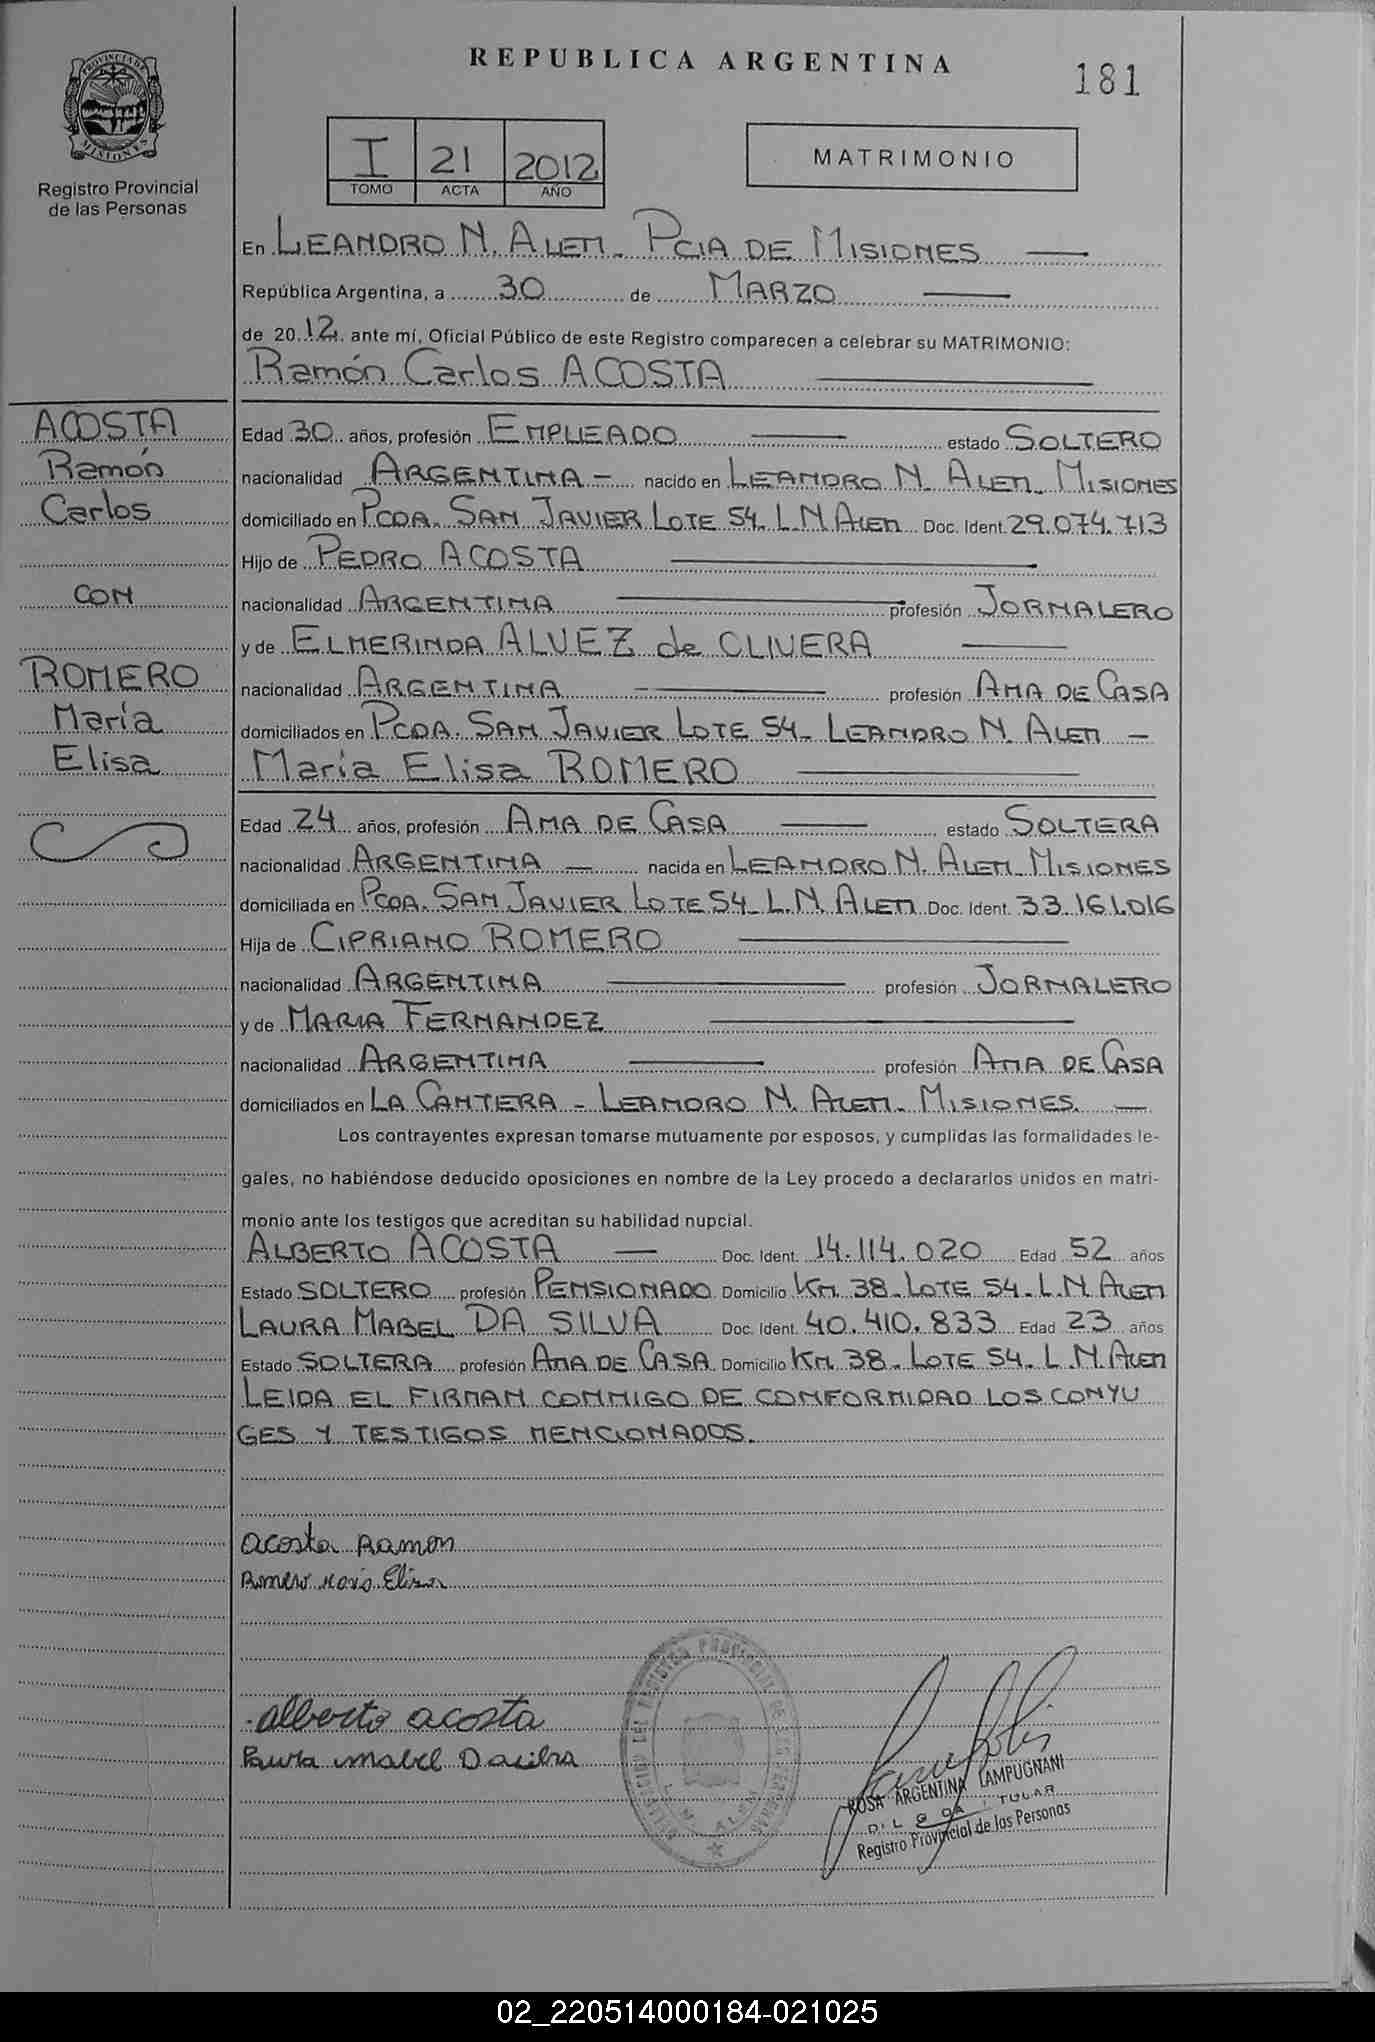 REPUBLICA ARGENTINA
181
PROVINCIA DE MISIONES
Registro Provincial
de las Personas
I 21 2012
TOMO ACTA AÑO
MATRIMONIO
En LEANDRO N. ALEM - PCIA DE MISIONES
República Argentina, a 30 de MARZO
de 2012 ante mí, Oficial Público de este Registro comparecen a celebrar su MATRIMONIO:
Ramón Carlos ACOSTA
ACOSTA
Ramón
Carlos
CON
ROMERO
María
Elisa
Edad 30 años, profesión EMPLEADO estado SOLTERO
nacionalidad ARGENTINA - nacido en LEANDRO N. ALEM - MISIONES
domiciliado en PCDA. SAN JAVIER LOTE 54 - L.N ALEM Doc. Ident. 29.074.713
Hijo de PEDRO ACOSTA
nacionalidad ARGENTINA profesión JORNALERO
y de ELMERINDA ALVEZ de OLIVERA
nacionalidad ARGENTINA profesión AMA DE CASA
domiciliados en PCDA. SAN JAVIER LOTE 54 - LEANDRO N. ALEM -
María Elisa ROMERO
Edad 24 años, profesión AMA DE CASA estado SOLTERA
nacionalidad ARGENTINA - nacida en LEANDRO N. ALEM - MISIONES
domiciliada en PCDA. SAN JAVIER LOTE 54 - L.N. ALEM Doc. Ident. 33.161.016
Hija de CIPRIANO ROMERO
nacionalidad ARGENTINA profesión JORNALERO
y de MARIA FERNANDEZ
nacionalidad ARGENTINA profesión AMA DE CASA
domiciliados en LA CANTERA - LEANDRO N. ALEM - MISIONES. -
Los contrayentes expresan tomarse mutuamente por esposos, y cumplidas las formalidades le-
gales, no habiéndose deducido oposiciones en nombre de la Ley procedo a declararlos unidos en matri-
monio ante los testigos que acreditan su habilidad nupcial.
ALBERTO ACOSTA - Doc. Ident. 14.114.020 Edad 52 años
Estado SOLTERO profesión PENSIONADO Domicilio KM. 38 - LOTE 54 - L.N ALEM
LAURA MABEL DA SILVA Doc. Ident. 40.410.833 Edad 23 años
Estado SOLTERA profesión AMA DE CASA Domicilio KM. 38 - LOTE 54 - L.N. ALEM
LEIDA EL FIRMAN CONMIGO DE CONFORMIDAD LOS CONYU
GES Y TESTIGOS MENCIONADOS.
acosta Ramon
Romero Maria Elisa
alberto acosta
Laura mabel Dacilva
ROSA ARGENTINA LAMPUGNANI
Registro Provincial de las Personas
02_220514000184-021025